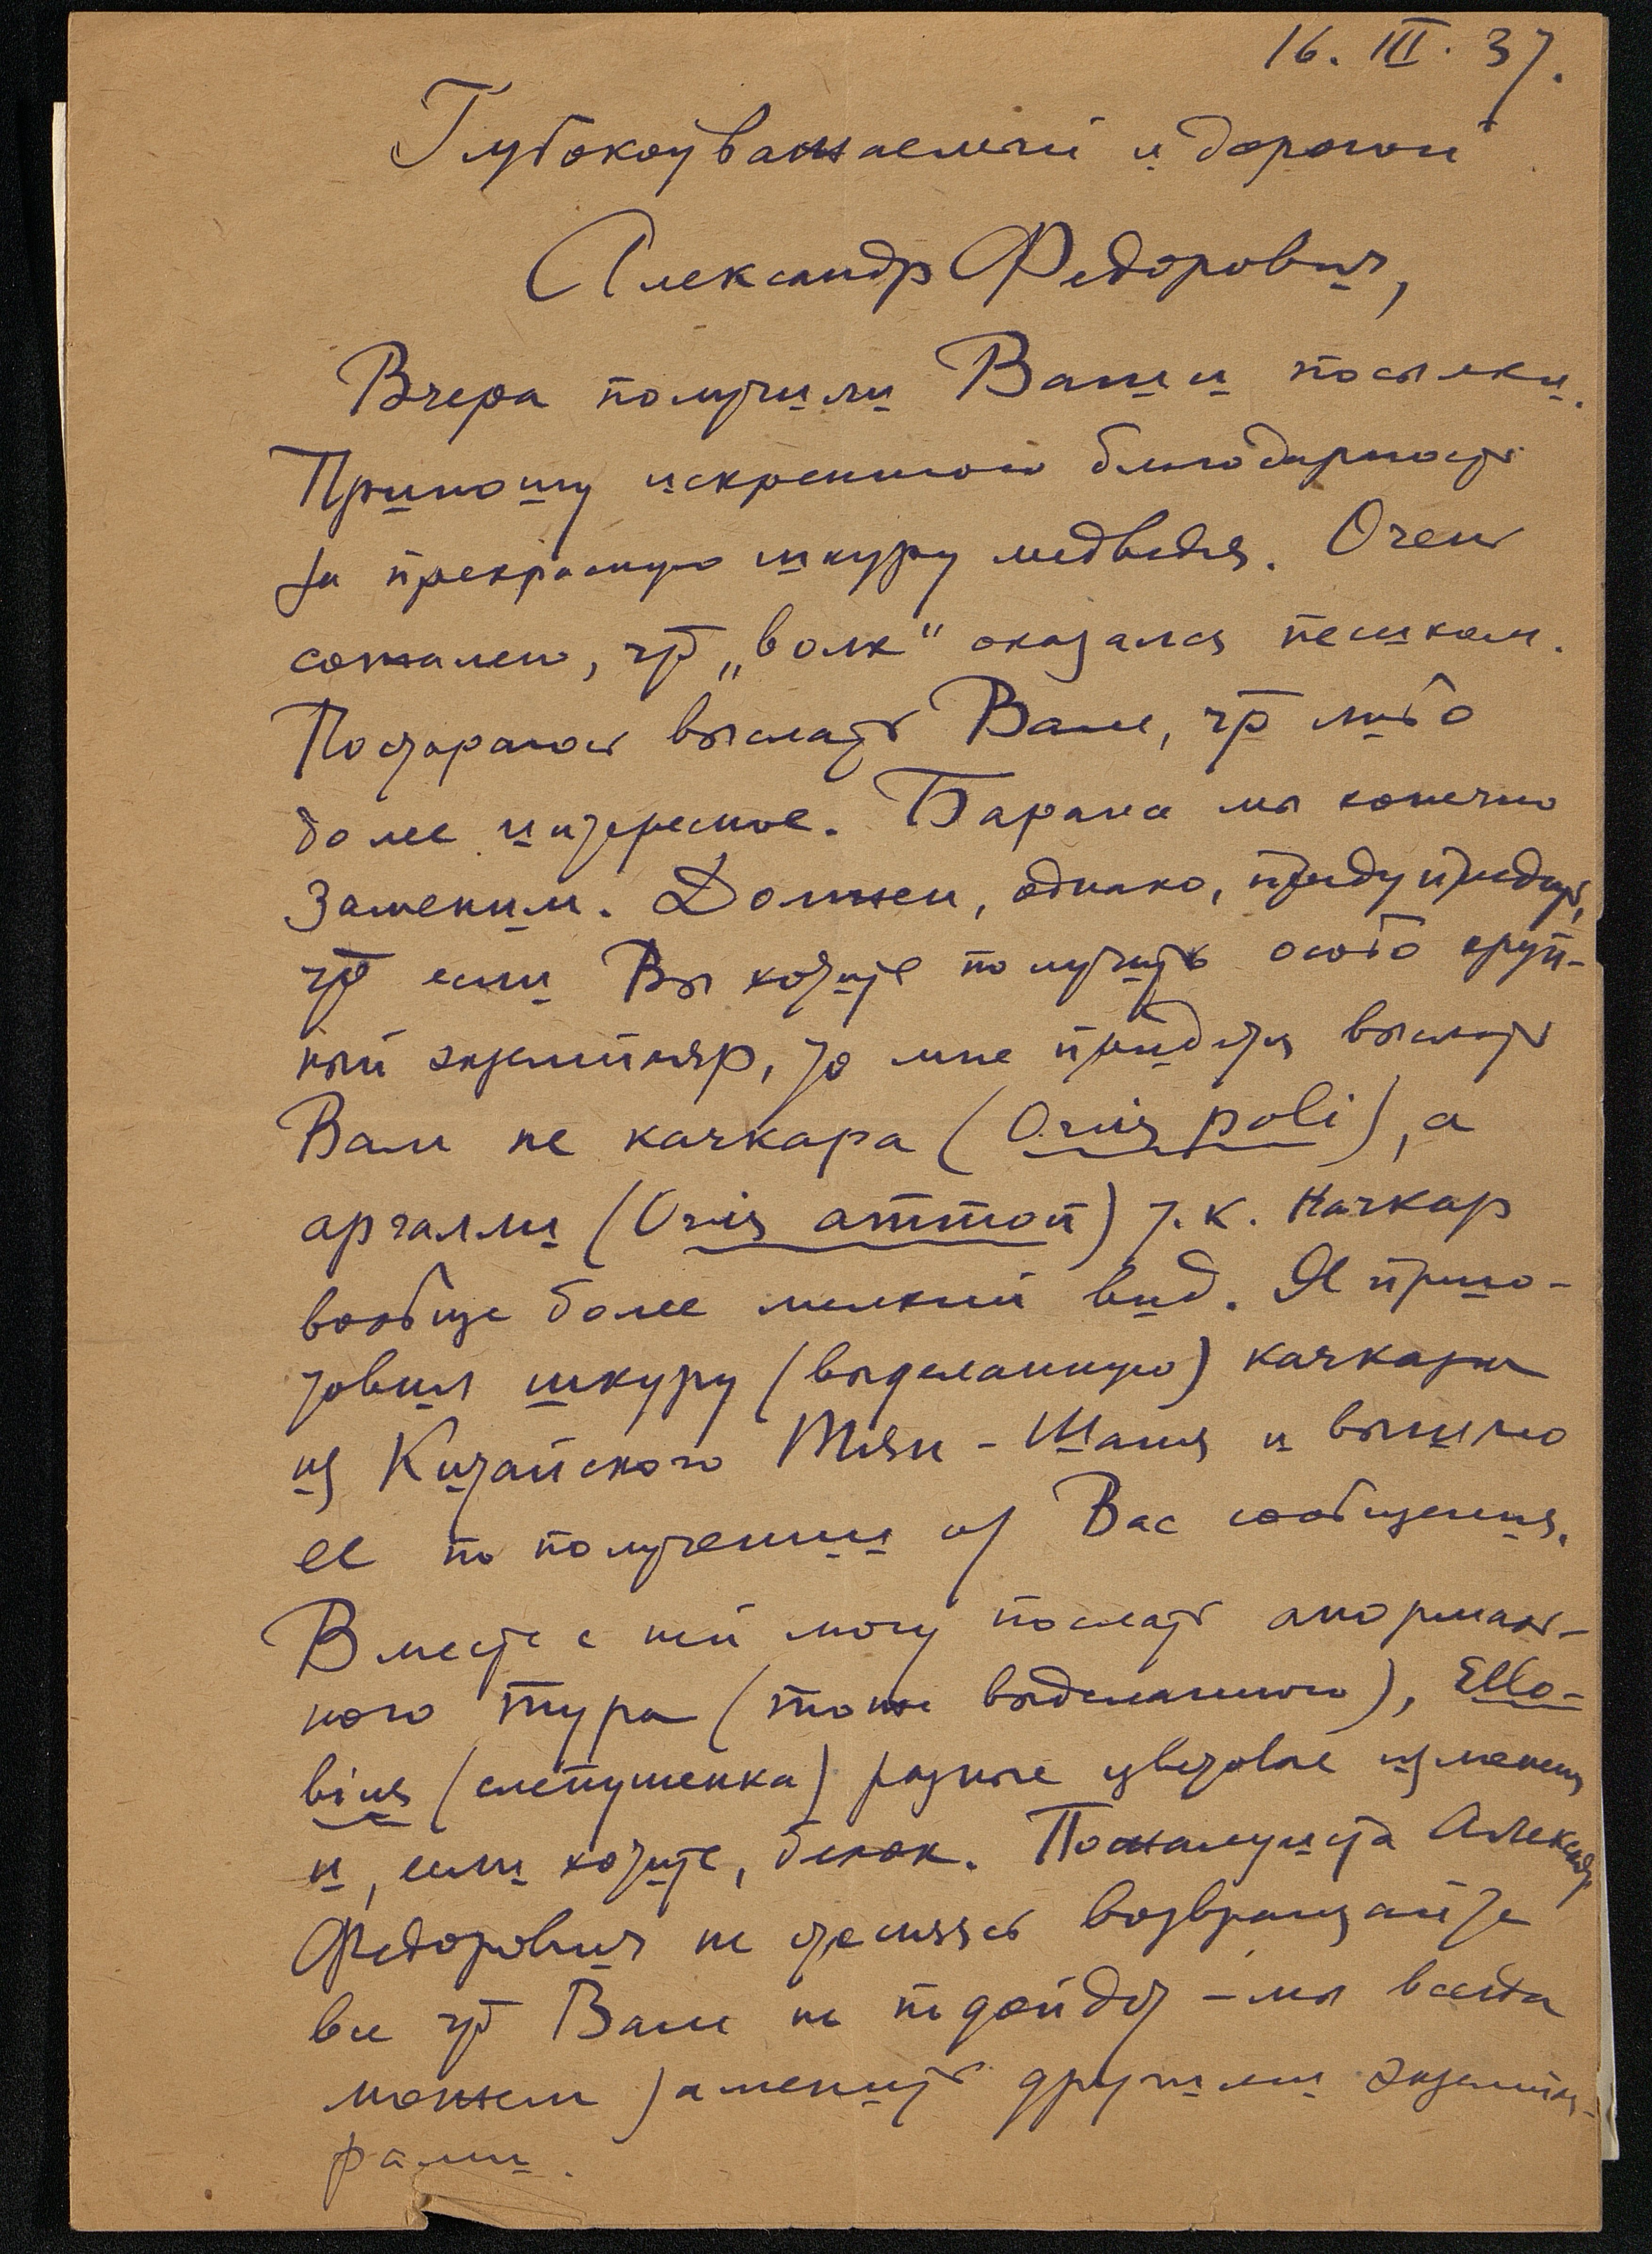 16. III. 37.
Глубокоуважаемый и дорогой
Александр Федорович,
Вчера получили Ваши посылки.
Приношу искреннюю благодарность
за прекрасную шкуру медведя. Очень
сожалею, что „волк" оказался пешком.
Постараюсь выслать Вам, что либо
более интересное. Барана мы конечно
заменим. Должен, однако, предупредить,
что если Вы хотите получить особо круп-
ный экземпляр, то мне придется выслать
Вам не качкара (Ovis poli), а
аргалли (Ovis ammon) т.к. качкар
вообще более мелкий вид. Я приго-
товил шкуру (выделанную) качкара
из Китайского Тянь-Шаня и вышлю
ее по получении от Вас сообщения.
Вместе с ней могу послать анормаль-
ного тура (тоже выделанного), Ello-
bius (слепушенка) разные цветовые изменения
и, если хотите, белок. Пожалуйста Александр
Федорович не стесняясь возвращайте
все что Вам не подойдет - мы всегда
можем заменить другими экземпля-
рами.